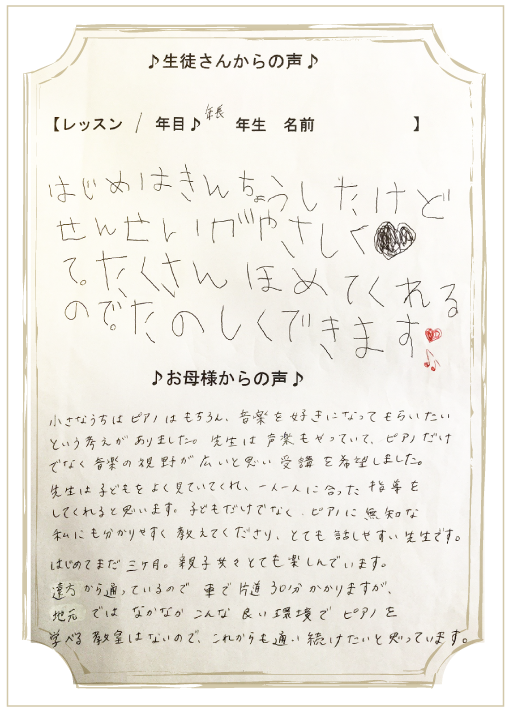 ♪生徒さんからの声♪
【レッスン 1 年目♪ 年長 年生 名前 】
はじめはきんちょうしたけど
せんせいがやさしく
て。たくさん ほめてくれる
ので。たのしくできます
♪お母様からの声♪
小さなうちは ピアノはもちろん、音楽を好きになってもらいたい
という考えがありました。先生は声楽もやっていて、ピアノだけ
でなく音楽の視野が広いと思い受講を希望しました。
先生は子どもをよく見ていてくれ、一人一人に合った指導を
してくれると思います。子どもだけでなく、ピアノに無知な
私にも分かりやすく教えてくださり、とても話しやすい先生です。
はじめてまだ三ヶ月。親子共々とても楽しんでいます。
遠方から通っているので車で片道30分かかりますが、
地元ではなかなかこんな良い環境でピアノを
学べる教室はないので、これからも通い続けたいと思っています。